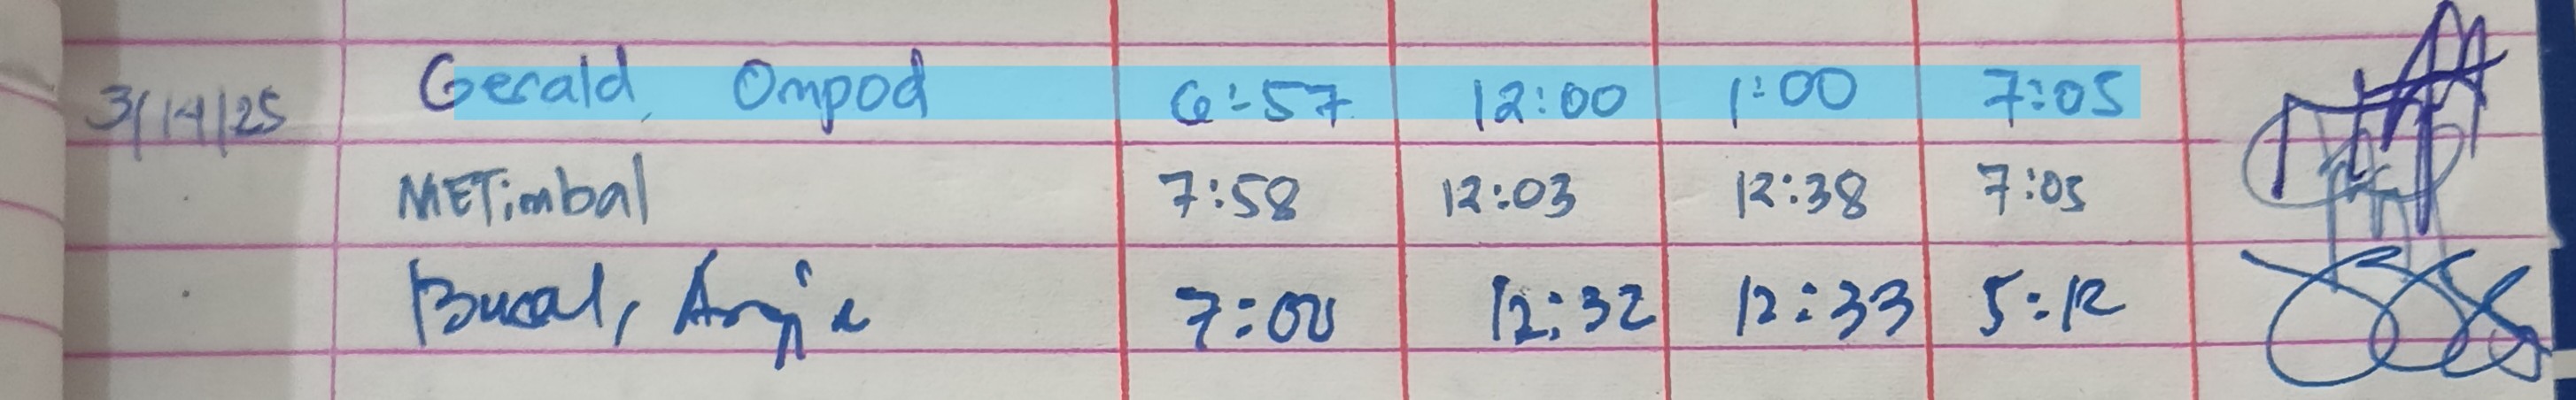 3/14/25 Gerald Ompod 6:57 12:00 1:00 7:05
METimbal 7:58 12:03 12:38 7:05
Bucal, Angie 7:00 12:32 12:33 5:12